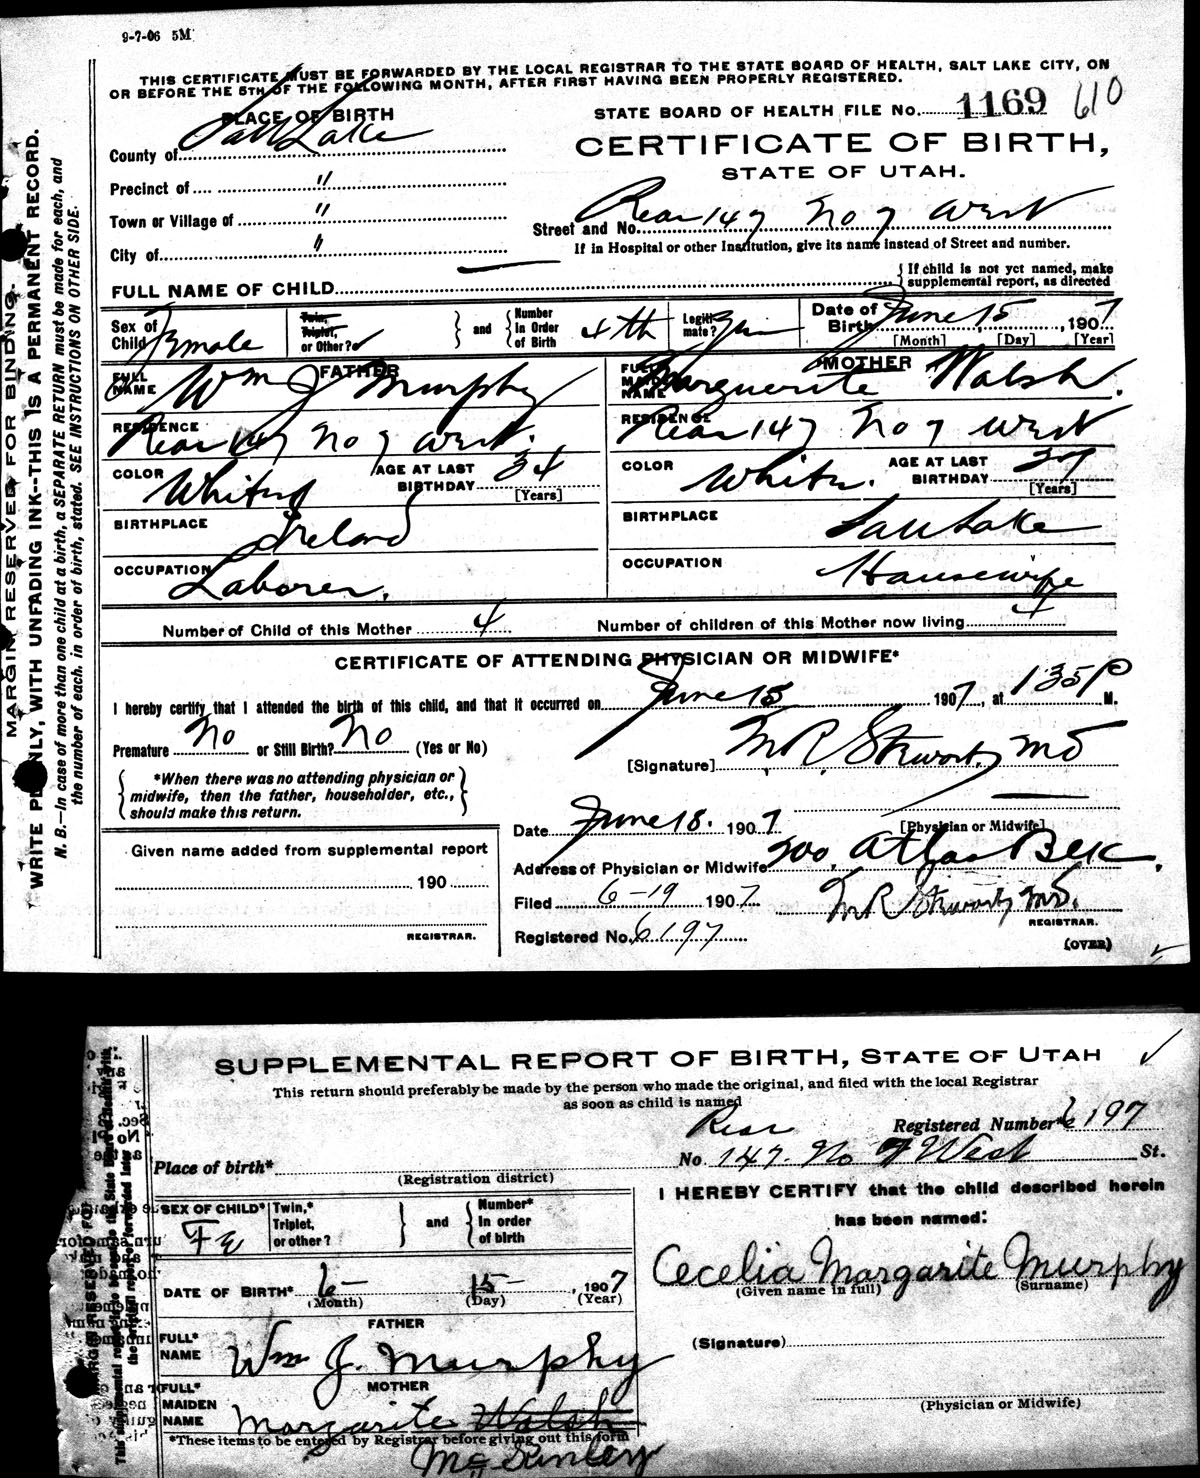 9-7-06 5M
THIS CERTIFICATE MUST BE FORWARDED BY THE LOCAL REGISTRAR TO THE STATE BOARD OF HEALTH, SALT LAKE CITY, ON
OR BEFORE THE 5TH OF THE FOLLOWING MONTH, AFTER FIRST HAVING BEEN PROPERLY REGISTERED.
PLACE OF BIRTH
STATE BOARD OF HEALTH FILE No. 1169 610
County of Salt Lake
CERTIFICATE OF BIRTH,
STATE OF UTAH.
Precinct of "
Town or Village of "
Street and No. Rear 147 No 7 West
If in Hospital or other Institution, give its name instead of Street and number.
City of "
FULL NAME OF CHILD
If child is not yet named, make
supplemental report, as directed
Sex of Child Female
Twin, Triplet, or Other?
and
Number in Order of Birth 4th
Legitimate?
Date of Birth June 15, 1907
[Month] [Day] [Year]
FATHER
MOTHER
FULL NAME Wm J Murphy
FULL MAIDEN NAME Marguerite Walsh.
RESIDENCE Rear 147 No 7 West.
RESIDENCE Rear 147 No 7 West
COLOR White
AGE AT LAST BIRTHDAY 34
[Years]
COLOR White.
AGE AT LAST BIRTHDAY 37
[Years]
BIRTHPLACE Ireland
BIRTHPLACE Salt Lake
OCCUPATION Laborer.
OCCUPATION Housewife
Number of Child of this Mother 4
Number of children of this Mother now living 4
CERTIFICATE OF ATTENDING PHYSICIAN OR MIDWIFE*
I hereby certify that I attended the birth of this child, and that it occurred on June 15 1907, at 135 P M.
Premature No or Still Birth? No (Yes or No)
[Signature] M R Stewart, MD
*When there was no attending physician or
midwife, then the father, householder, etc.,
should make this return.
[Physician or Midwife]
Date June 18. 1907
Given name added from supplemental report
190
REGISTRAR.
Address of Physician or Midwife 200 Atlas Blk.
Filed 6-19 1907
M R Stewart, MD.
REGISTRAR.
Registered No. 6197
(OVER)
MARGIN RESERVED FOR BINDING.
WRITE PLAINLY, WITH UNFADING INK--THIS IS A PERMANENT RECORD.
N. B.—In case of more than one child at a birth, a SEPARATE RETURN must be made for each, and
the number of each, in order of birth, stated. SEE INSTRUCTIONS ON OTHER SIDE.
SUPPLEMENTAL REPORT OF BIRTH, STATE OF UTAH
This return should preferably be made by the person who made the original, and filed with the local Registrar
as soon as child is named
Registered Number* 6197
Place of birth*
(Registration district)
Rear
No. 147. No 7 West St.
SEX OF CHILD* Fe
Twin, Triplet, or other?
and
Number* in order of birth
I HEREBY CERTIFY that the child described herein
has been named:
Cecelia Margarite Murphy
(Given name in full) (Surname)
DATE OF BIRTH* 6- 15- , 1907
(Month) (Day) (Year)
(Signature)
FATHER
FULL* NAME Wm J. Murphy
(Physician or Midwife)
MOTHER
FULL* MAIDEN NAME Margarite Walsh
*These items to be entered by Registrar before giving out this form